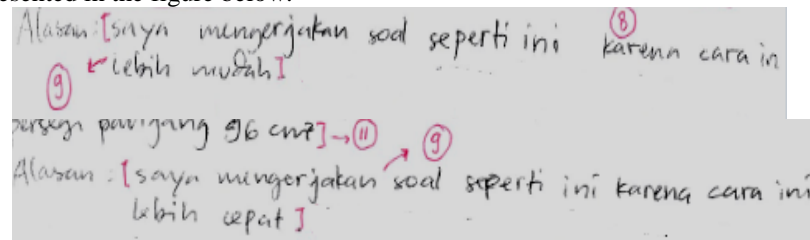 presented in the figure below.
Alasan : [saya mengerjakan soal seperti ini karena cara in
⑧
⑨ lebih mudah]
persegi panjang 96 cm²] → ⑪
⑨
Alasan : [saya mengerjakan soal seperti ini karena cara ini
lebih cepat]